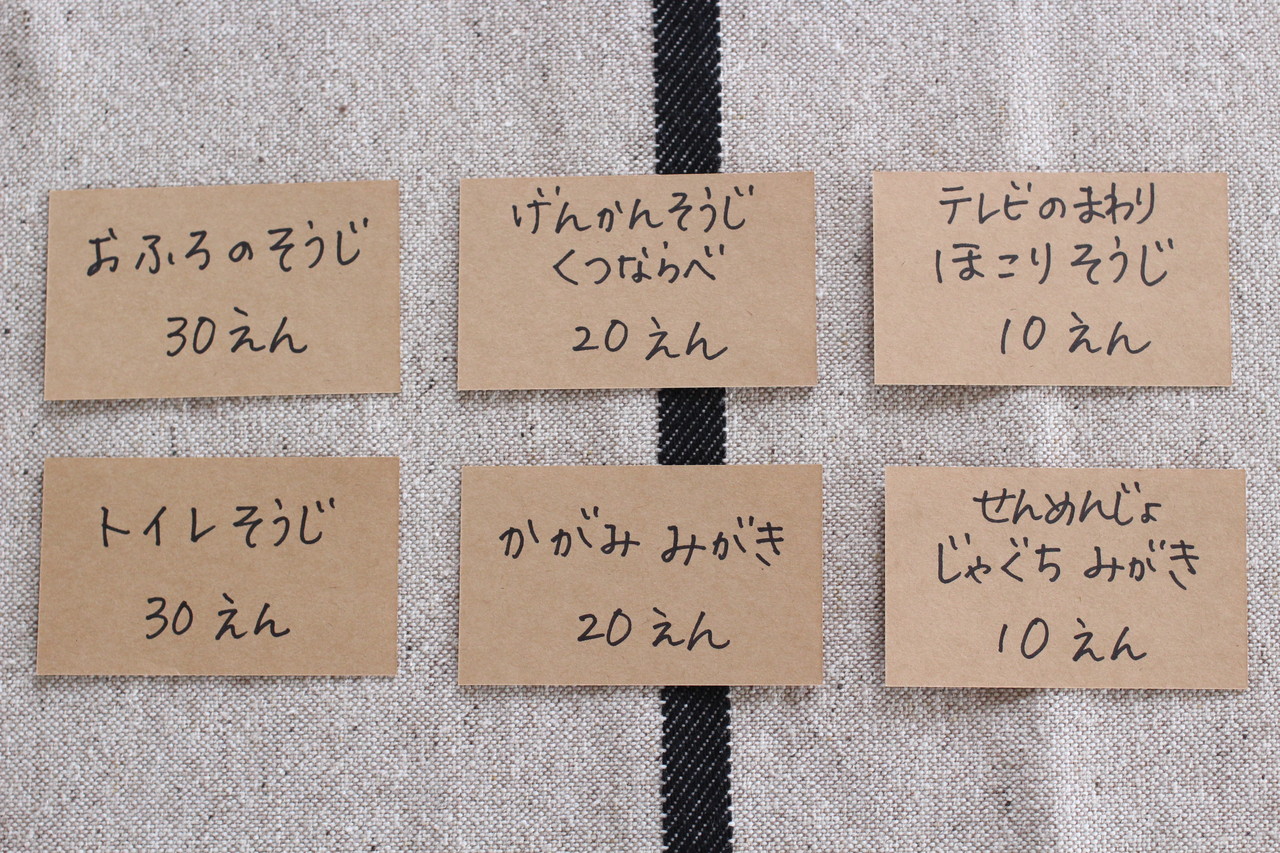 おふろのそうじ
30えん
げんかんそうじ
くつならべ
20えん
テレビのまわり
ほこりそうじ
10えん
トイレそうじ
30えん
かがみ みがき
20えん
せんめんじょ
じゃぐち みがき
10えん